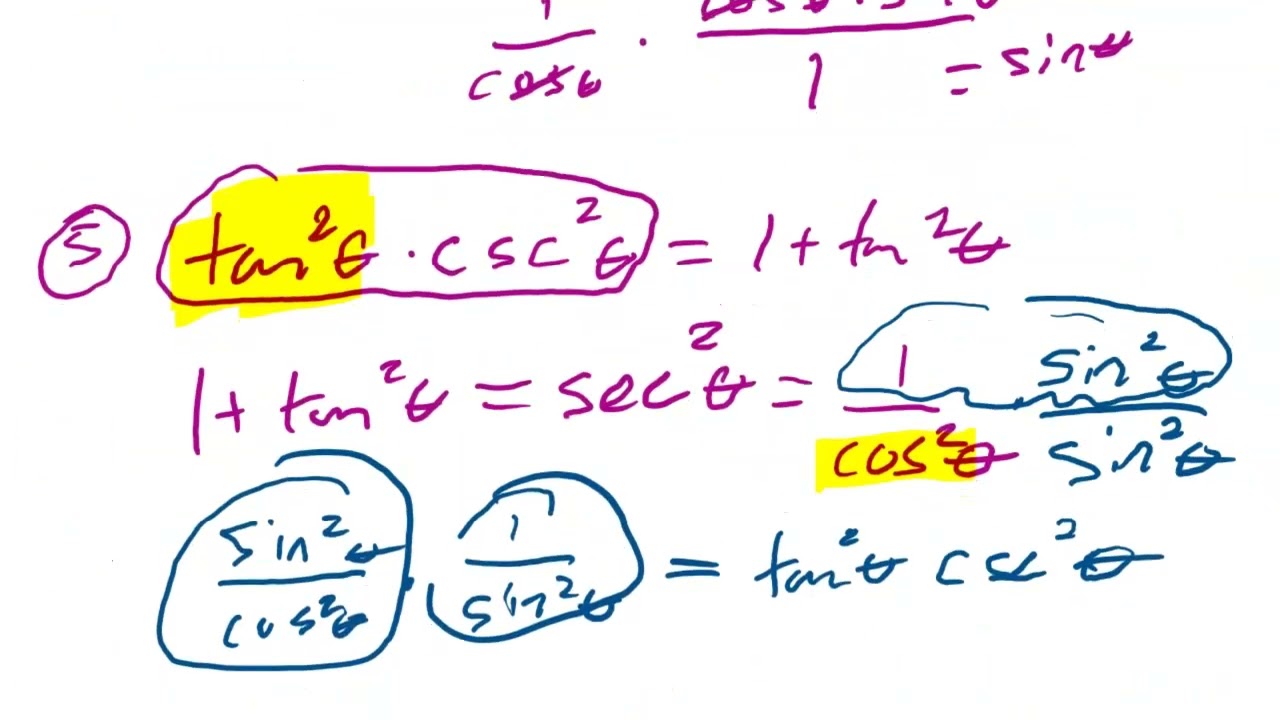 1/cosθ · /1 = sinθ
⑤ tan²θ · csc²θ = 1 + tan²θ
1 + tan²θ = sec²θ = 1/cos²θ sin²θ/sin²θ
sin²θ/cos²θ · 1/sin²θ = tan²θ csc²θ